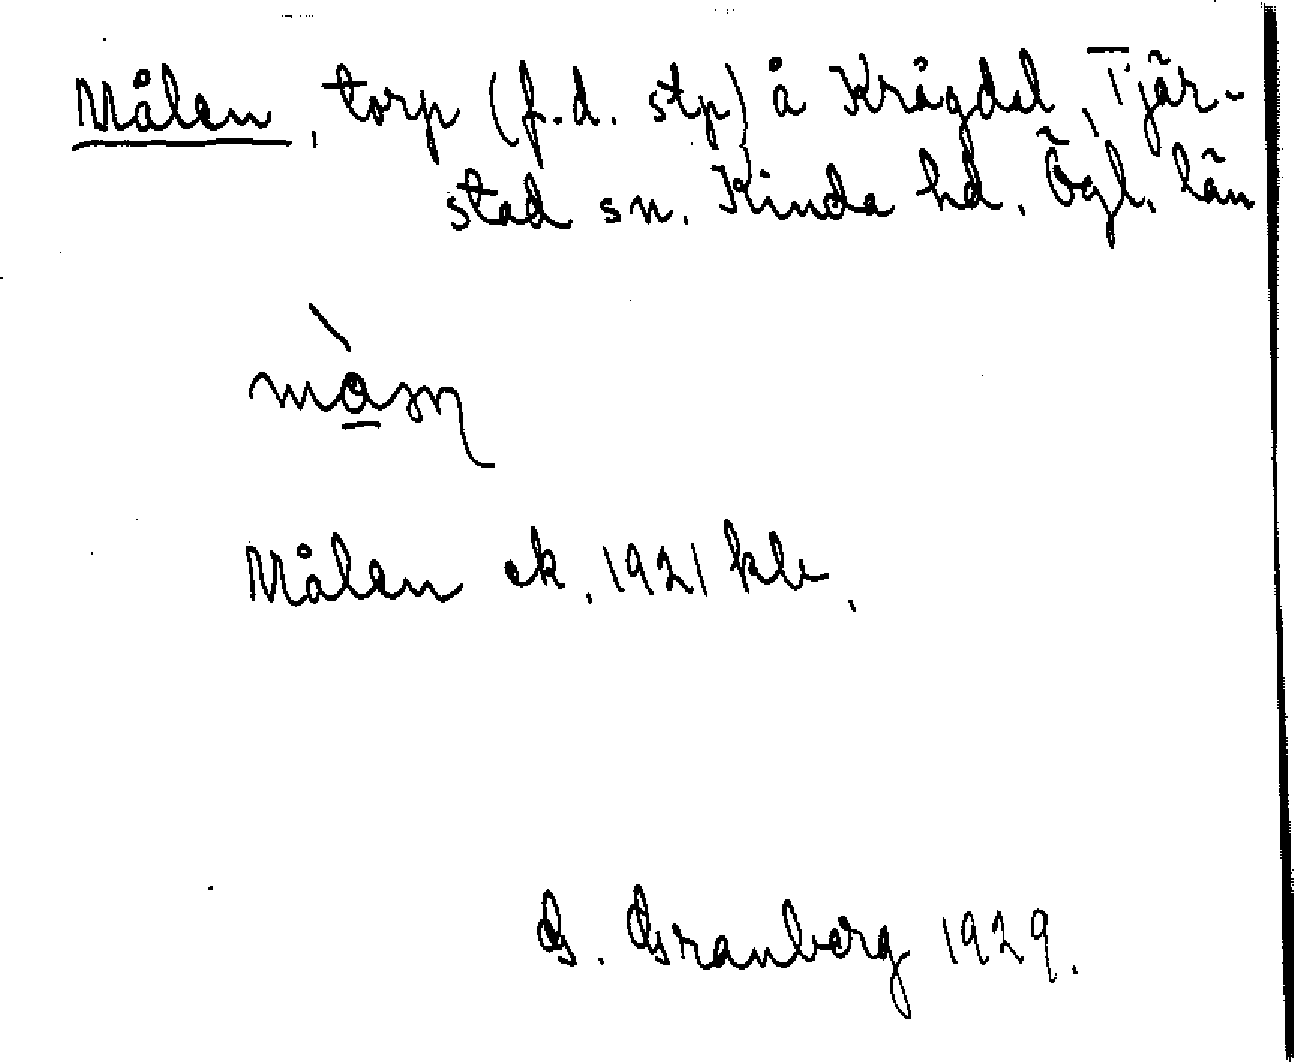 Målen, torp (f.d. stp) å Krågdal, Tjär-
stad sn. Kinda hd. Ögl. län
Målen ek. 1921 kb.
G. Granberg 1929.